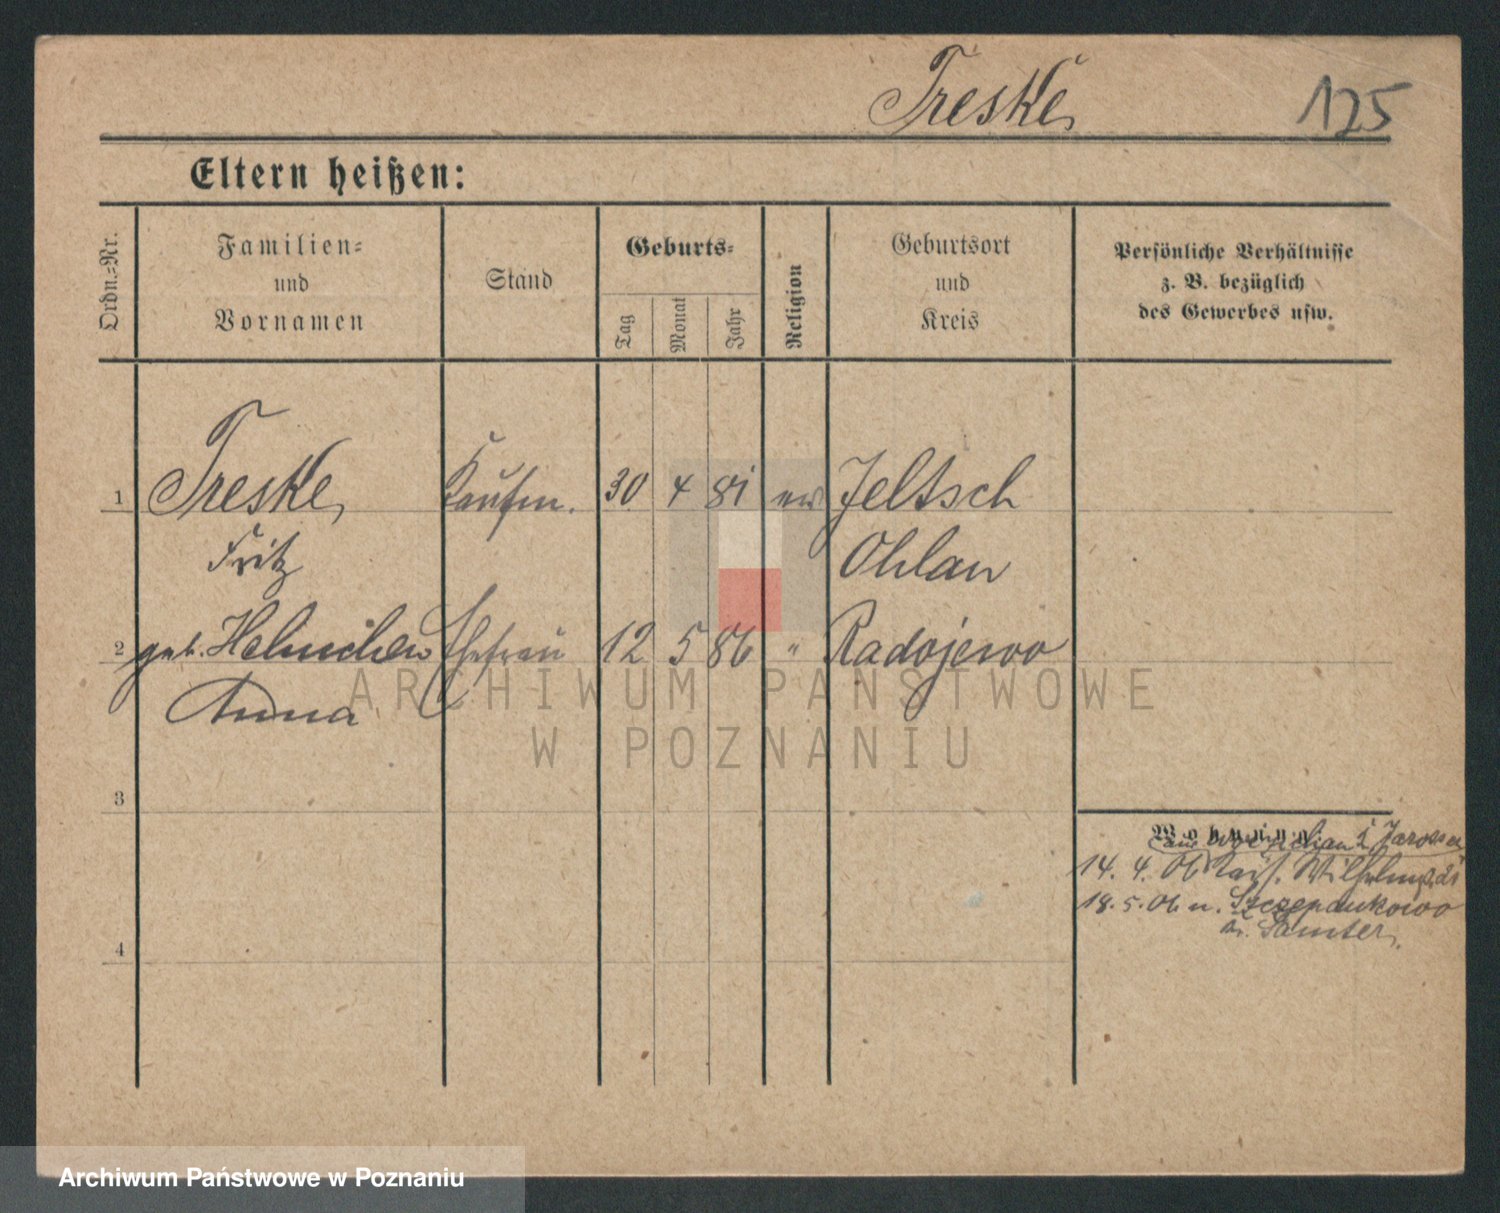 Treske
125
Eltern heißen:
Ordn.-Nr.
Familien-
und
Vornamen
Stand
Geburts-
Tag
Monat
Jahr
Religion
Geburtsort
und
Kreis
Persönliche Verhältnisse
z. B. bezüglich
des Gewerbes usw.
1 Treske, Kaufm. 30 4 81 ev Jeltsch
Fritz Ohlau
2 geb. Helmchen Ehefrau 12 5 86 " Radojewo
Anna
ARCHIWUM PAŃSTWOWE
W POZNANIU
3
Wohnung
14. 4. 06 Wilhelmspl.
18. 5. 06 n. Szczepankowo
Kr. Samter.
4
Archiwum Państwowe w Poznaniu